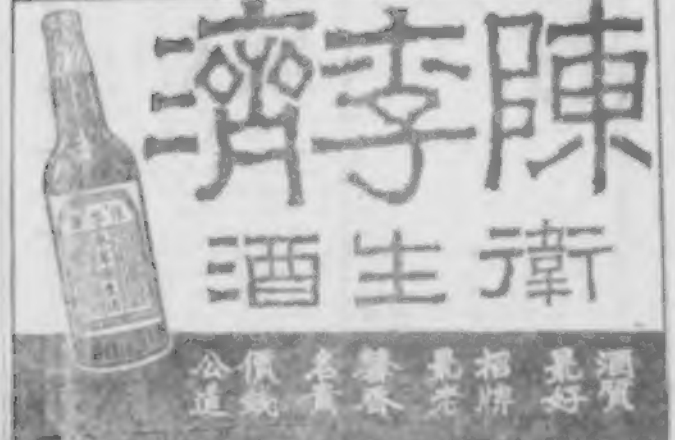 陳李濟
衛生酒
酒質最好
招牌最老
馨香名貴
價錢公道